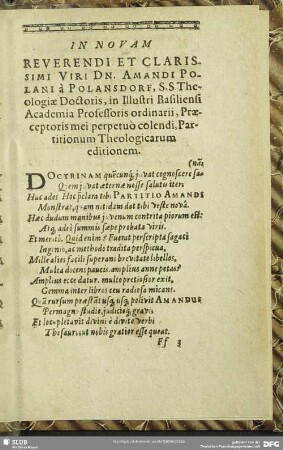 IN NOVAM
REVERENDI ET CLARIS-
SIMI VIRI DN. AMANDI PO-
LANI à POLANSDORF, S.S. The-
ologiæ Doctoris, in Illustri Basiliensi
Academia Professoris ordinarii, Præ-
ceptoris mei perpetuò colendi, Par-
titionum Theologicarum
editionem.
DOCTRINAM quæcunq; juvat cognoscere sa-
Quem juvat æternæ nosse salutis iter:
Huc ades. Hoc præclara tibi PARTITIO AMANDI
Monstrat, quam nitidam dat tibi veste novâ.
Hæc dudum manibus juvenum contrita piorum est:
Atq, adeò summis sæpe probata viris.
Et meritò. Quid enim? Fuerat perscripta sagaci
Ingenio, ac methodo tradita perspicua,
Mille alios facili superans brevitate libellos,
Multa docens paucis. amplius anne petas?
Amplius ecce datur. multo pretiosior exit,
Gemma inter libros ceu radiosa micans.
Quā rursum præstās usq, usq, polivit AMANDUS
Permagno studio, judicioq, gravi.
Et locupletavit divini è divite verbi
Thesauro: ut nobis gratior esse queat.
Ff 3
SLUB
DFG